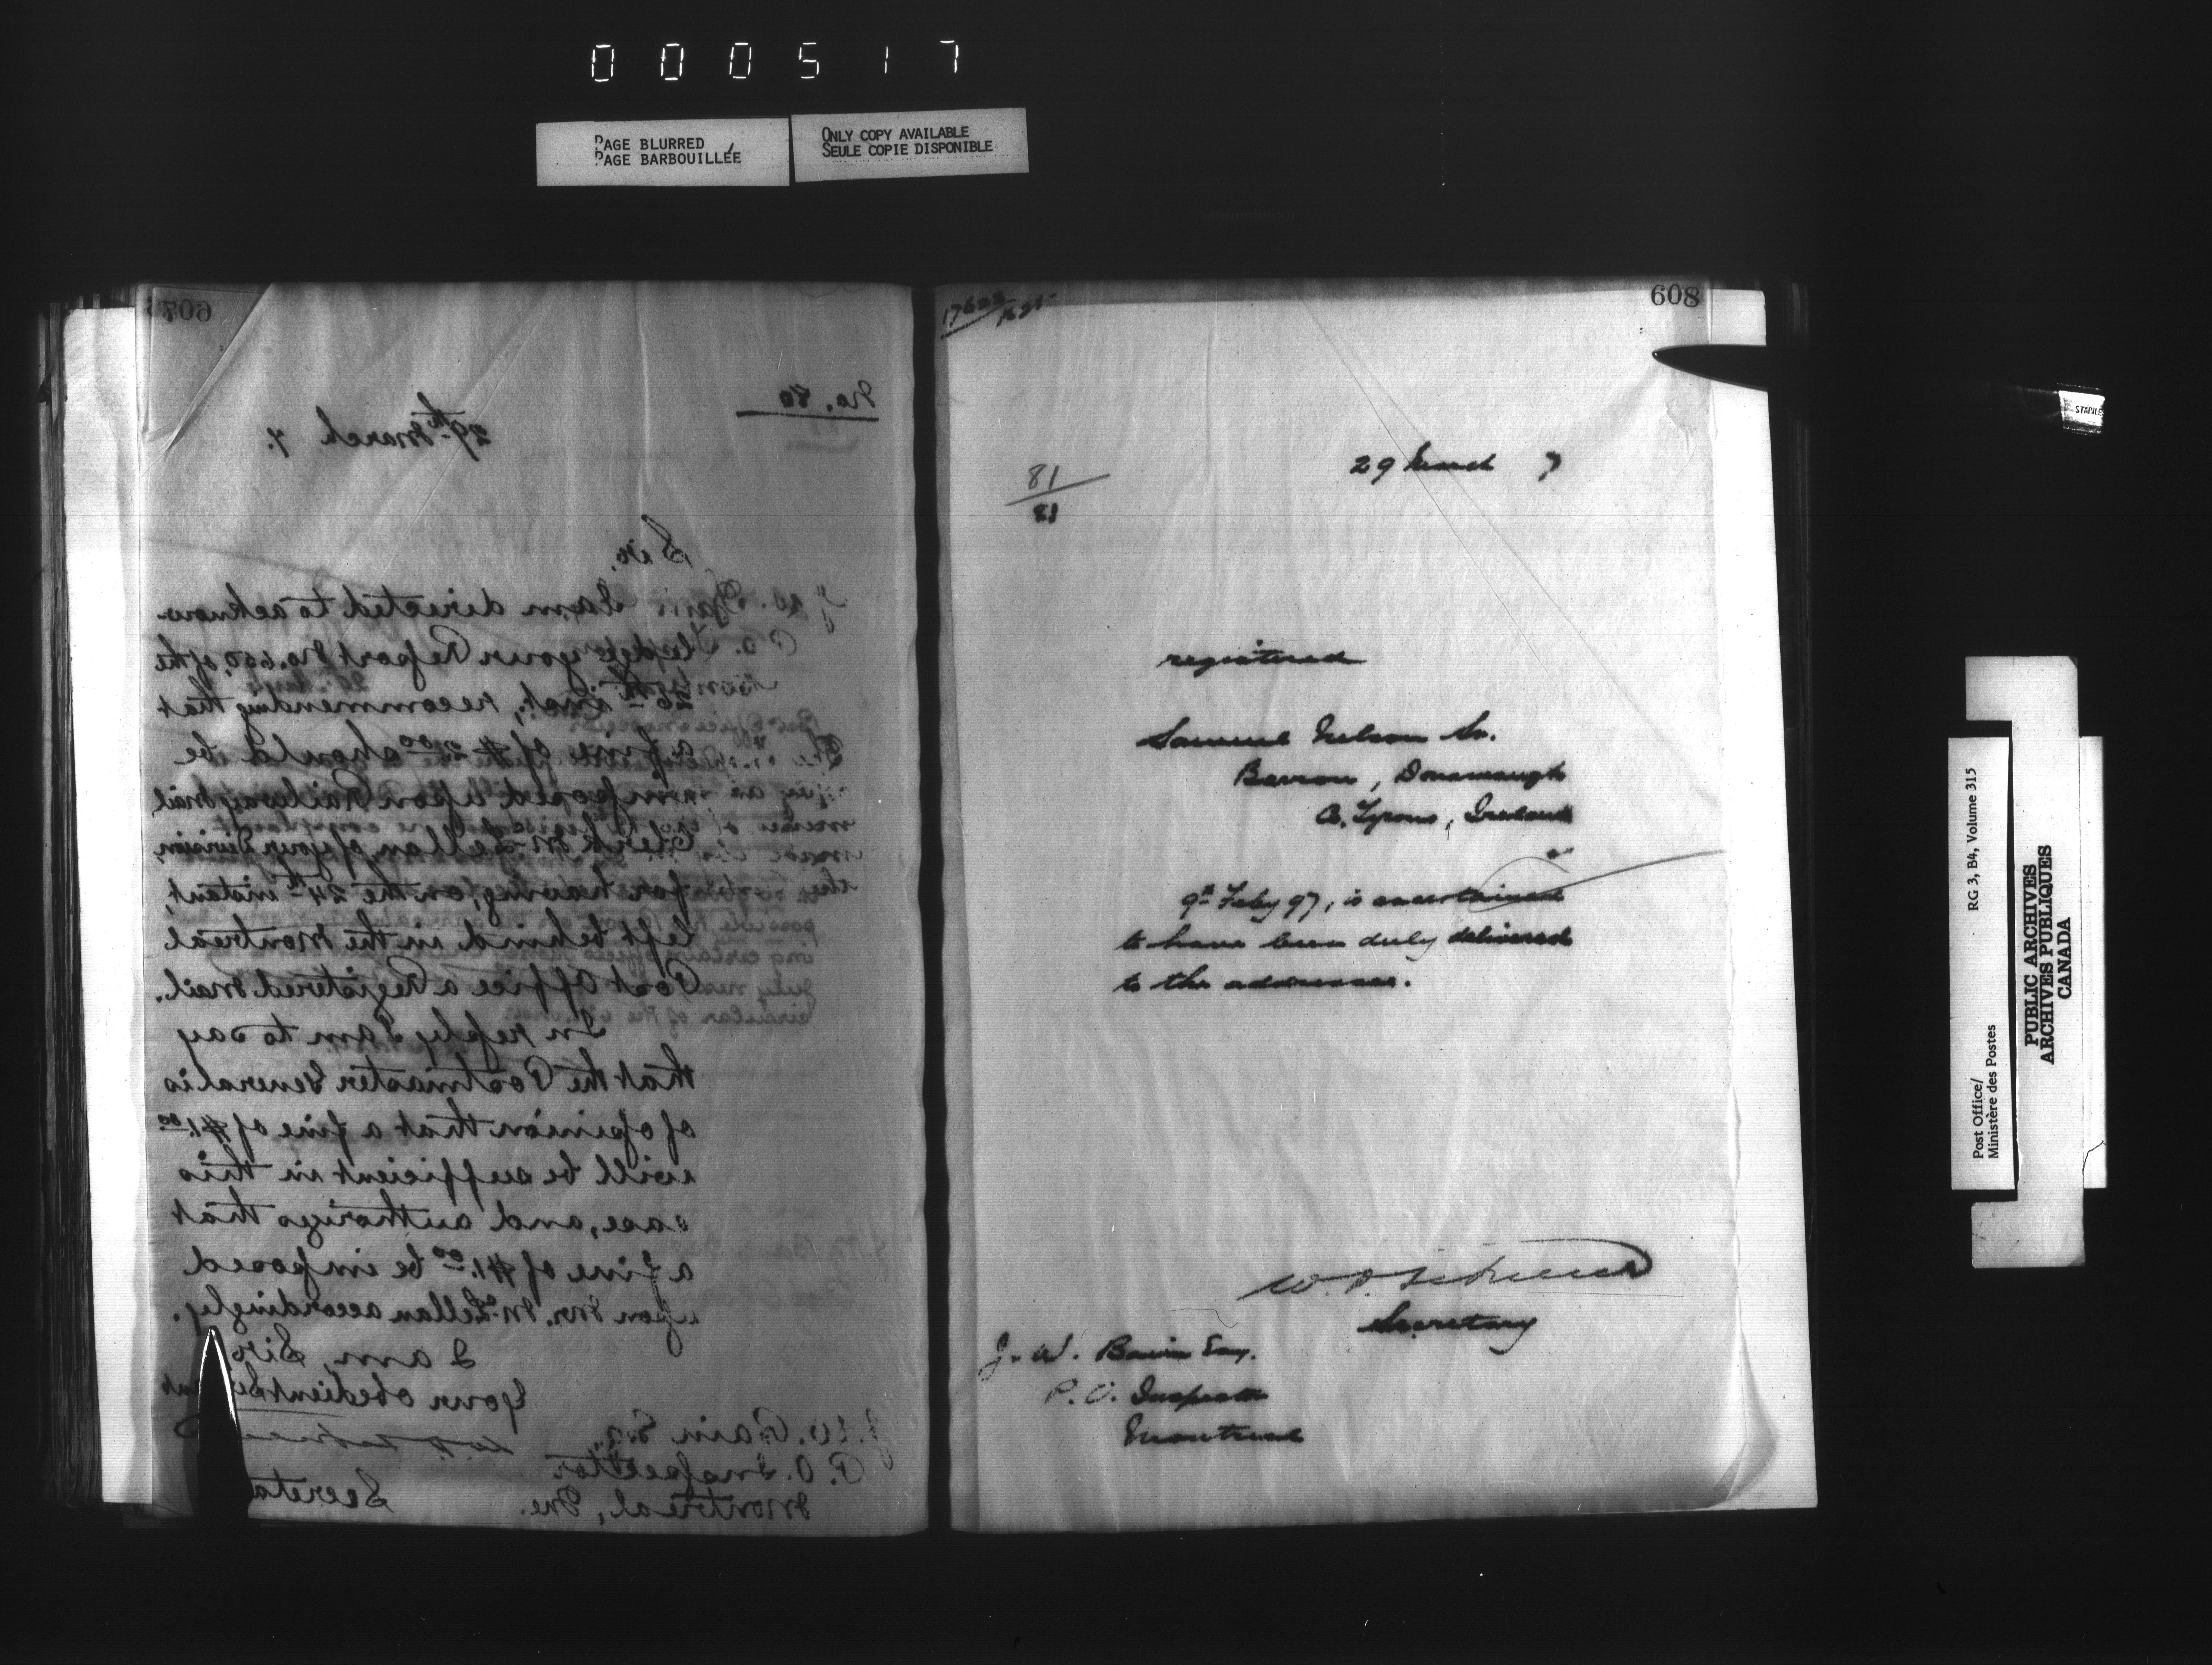 000517
PAGE BLURRED
PAGE BARBOUILLÉE
ONLY COPY AVAILABLE
SEULE COPIE DISPONIBLE
607
No. 80
29th March 7.
Sir,
I am directed to acknow-
ledge your Report No. 650, of the
26th inst., recommending that
a fine of $2.00 should be
imposed upon Railway Mail
Clerk McLellan, of your Division,
for having, on the 24th instant,
left behind in the Montreal
Post Office a Registered Mail.
In reply I am to say
that the Postmaster General is
of opinion that a fine of $1.00
will be sufficient in this
case, and authorizes that
a fine of $1.00 be imposed
upon Mr. McLellan accordingly.
I am, Sir
Your obedient
Secreta
J. W. Bain Esq.
P. O. Inspector
Montreal, Que.
608
81
81
29 March 7
registered
Samuel Nelson Sr.
Barron, Donamaugh
Co. Tyrone, Ireland
9th Feby 97, is ascertained
to have been duly delivered
to the addressee.
Secretary
J. W. Bain Esq.
P. O. Inspector
Montreal
STAINLES
Post Office/
Ministère des Postes
RG 3, B4, Volume 315
PUBLIC ARCHIVES
ARCHIVES PUBLIQUES
CANADA